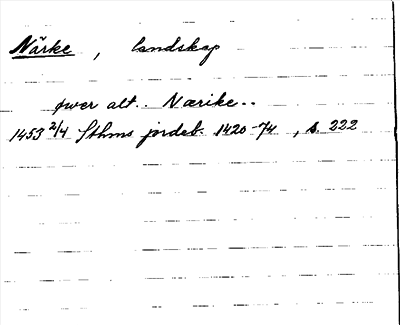 Närke, landskap
fwer alt.. Nærike..
1453 2/4 Sthms jordeb. 1420-74, s. 222